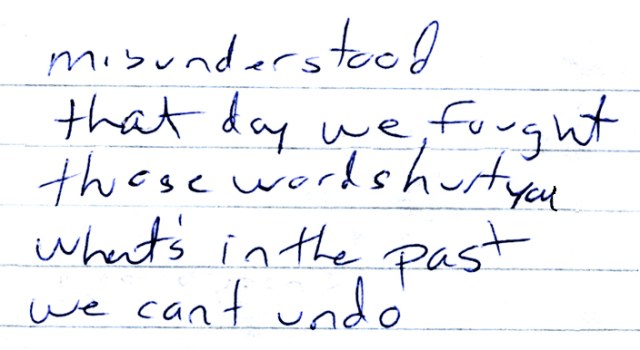 misunderstood
that day we fought
those words hurt you
what's in the past
we cant undo